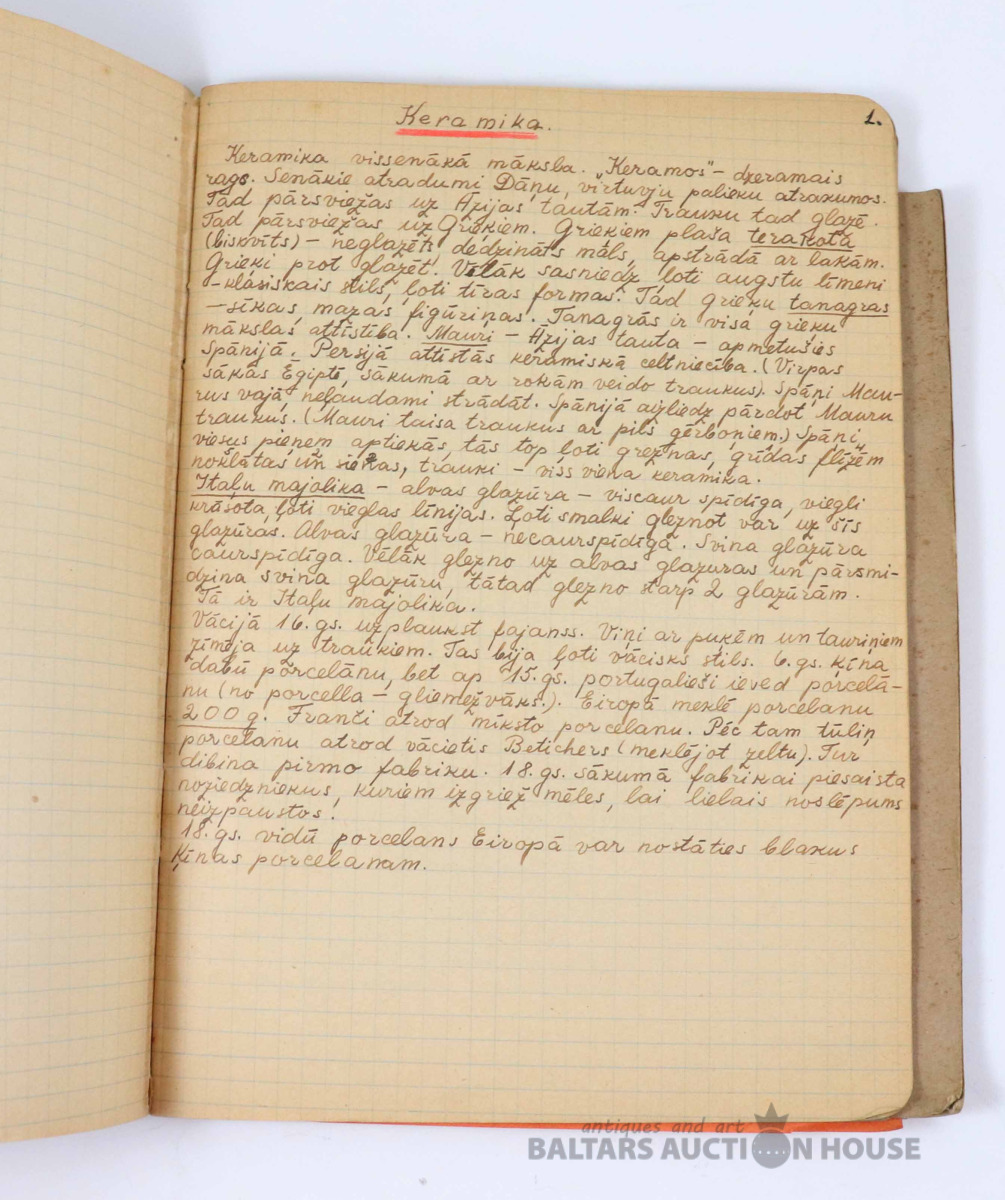 Keramika.
1.
Keramika vissenākā māksba. „Keramos" – dzeramais
rags. Senākie atradumi Dāņu, virtuvju palieku atrakumos.
Tad pārsviežas uz Āzijas tautām. Trauku tad glazē.
Tad pārsviežas uz Grieķiem. Grieķiem plaša terakota
(biskvīts) – neglazēts, dedzināts māls, apstrādā ar lakām.
Grieķi prot glazēt. Vēlāk sasniedz ļoti augstu līmeni
– klasiskais stils, ļoti tīras formas. Tad grieķu tanagras
– sīkas, mazas figūriņas. Tanagrās ir visa grieķu
mākslas attīstība. Mauri – Āzijas tauta – apmetušies
Spānijā. Persijā attīstās keramiskā celtniecība. (Virpas
sākas Egiptē, sākumā ar rokām veido traukus). Spāņi Mau-
rus vajā, neļaudami strādāt. Spānijā aizliedz pārdot Mauru
traukus. (Mauri taisa traukus ar pils ģērboņiem.) Spāņi
viesus pieņem aptiekās, tās top ļoti greznas, grīdas flīzēm
noklātas un sienas, trauki – viss viena keramika.
Itaļu majolika – alvas glazūra – viscaur spīdīga, viegli
krāsota, ļoti vieglas līnijas. Ļoti smalki gleznot var uz šīs
glazūras. Alvas glazūra – necaurspīdīga. Svina glazūra
caurspīdīga. Vēlāk glezno uz alvas glazuras un pārsmi-
dzina svina glazūru, tātad glezno starp 2 glazūrām.
Tā ir Itaļu majolika.
Vācijā 16. gs. uzplaukst fajanss. Viņi ar puķēm un tauriņiem
zīmēja uz traukiem. Tas bija ļoti vācisks stils. 6. gs. Ķīna
dabū porcelānu, bet ap 15. gs. portugalieši ieved porcelā-
nu (no porcella – gliemežvāks.). Eiropā meklē porcelanu
200 g. Franči atrod mīksto porcelanu. Pēc tam tūliņ
porcelanu atrod vācietis Betichers (meklējot zeltu). Tur
dibina pirmo fabriku. 18. gs. sākumā fabrikai piesaista
noziedzniekus, kuriem izgriež mēles, lai lielais noslēpums
neizpaustos!
18. gs. vidū porcelans Eiropā var nostāties blakus
Ķīnas porcelanam.
antiques and art
BALTARS AUCTION HOUSE